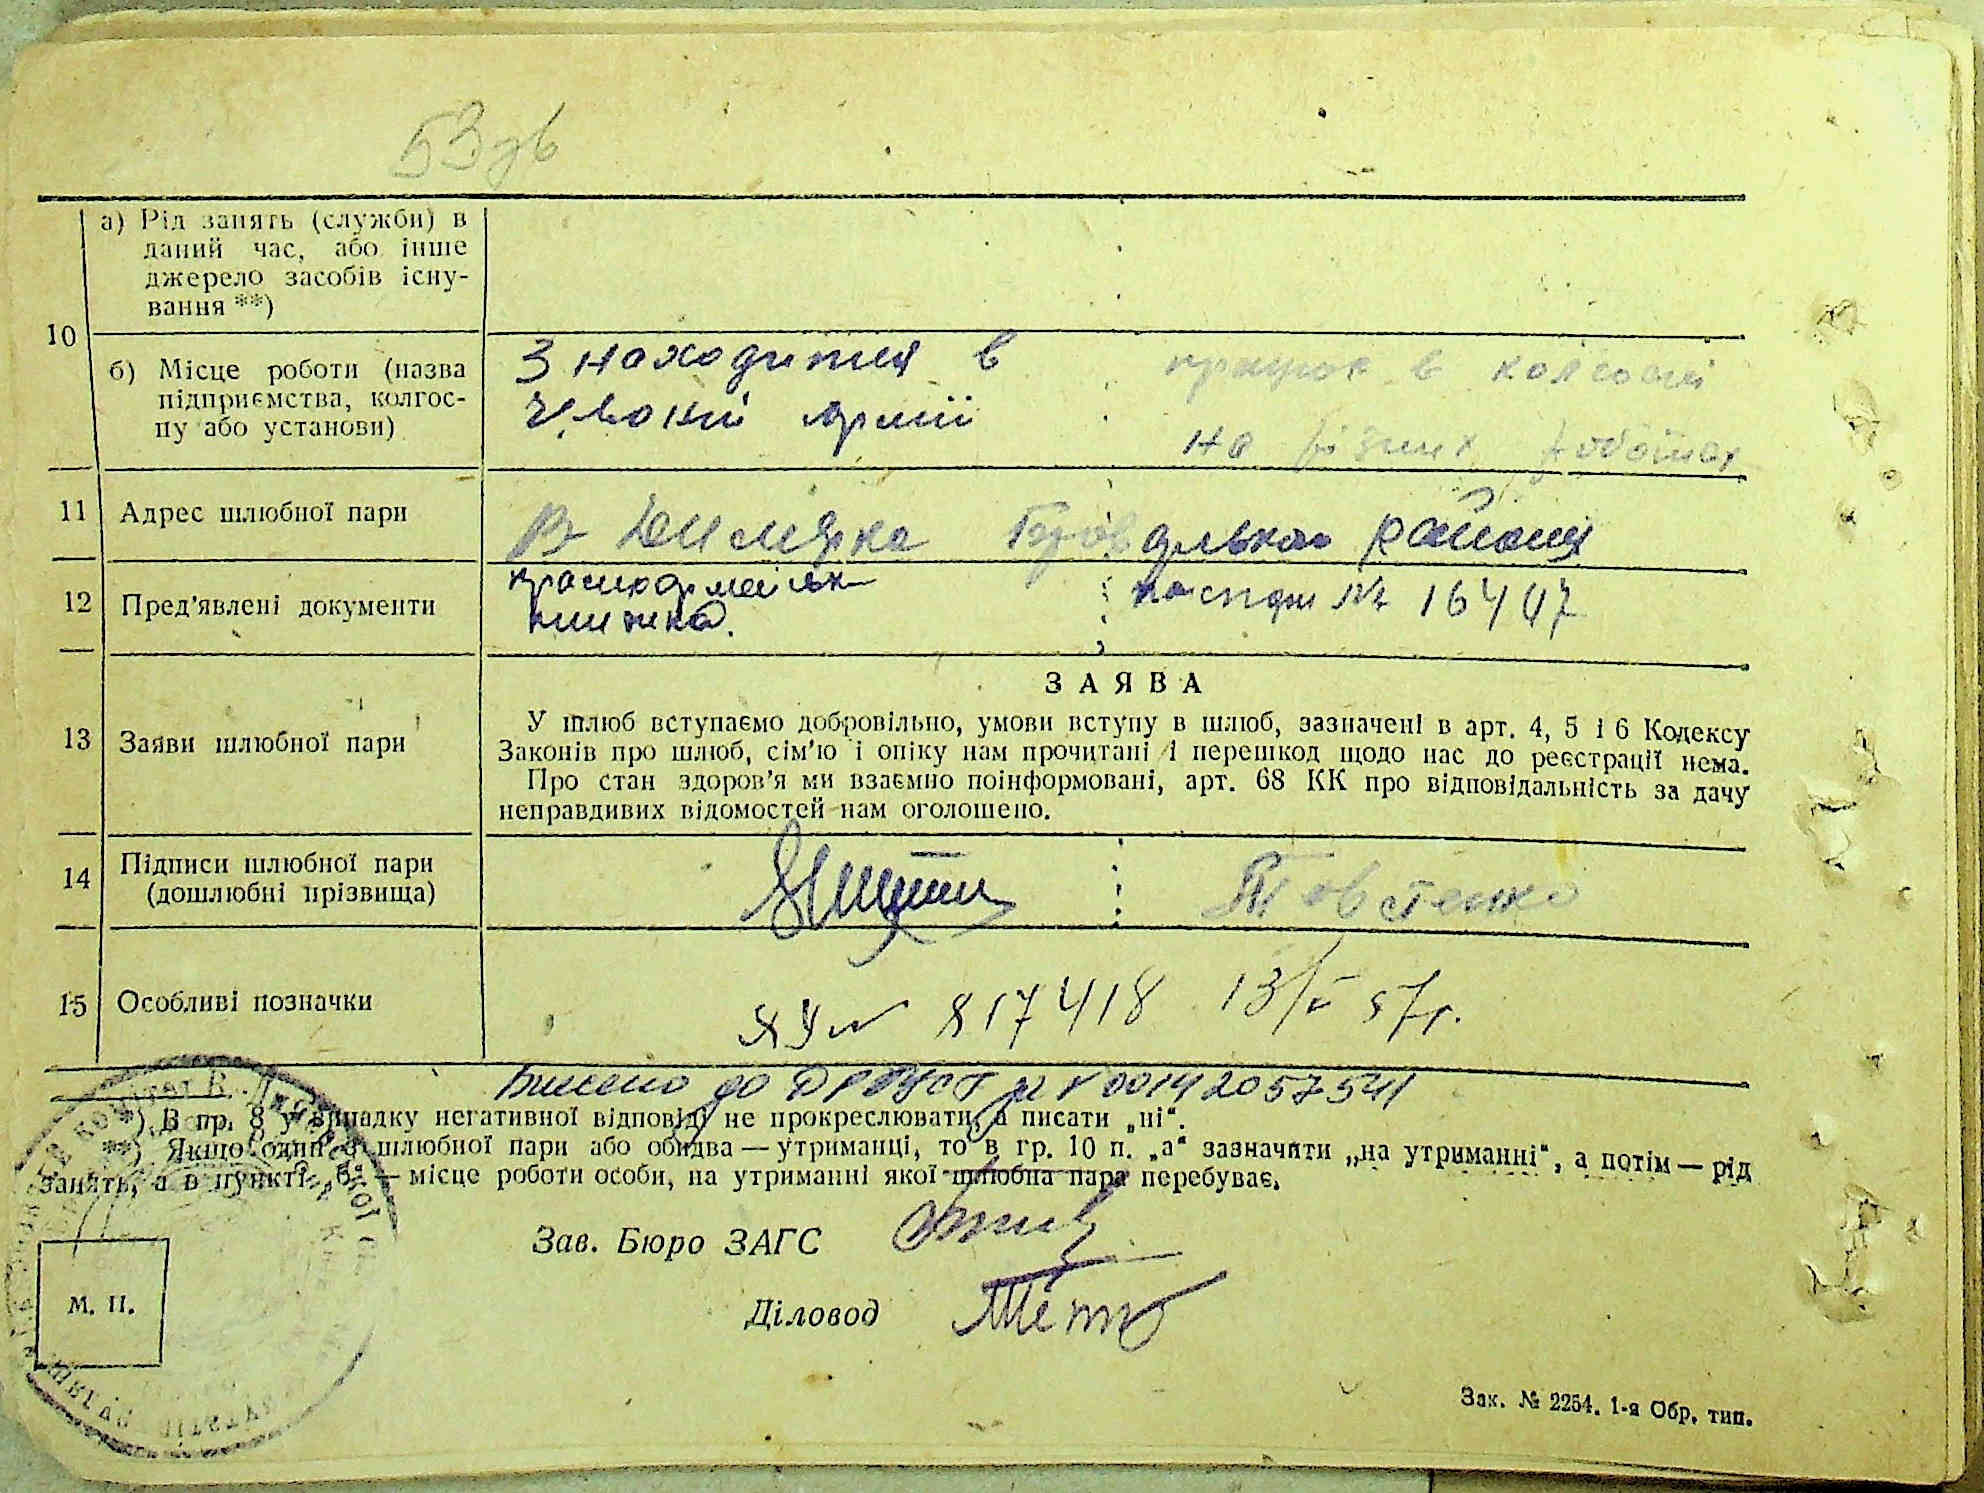 53 зв
а) Рід занять (служби) в
даний час, або інше
джерело засобів існу-
вання **)
10
б) Місце роботи (назва
підприємства, колгос-
пу або установи)
Знаходится в
армії
працює в колгоспі
на різних роботах
11 Адрес шлюбної пари
В Димерка району
12 Пред'явлені документи
красноармейськ
книжка.
паспорт № 16407
13 Заяви шлюбної пари
ЗАЯВА
У шлюб вступаємо добровільно, умови вступу в шлюб, зазначені в арт. 4, 5 і 6 Кодексу
Законів про шлюб, сім'ю і опіку нам прочитані і перешкод щодо нас до реєстрації нема.
Про стан здоров'я ми взаємно поінформовані, арт. 68 КК про відповідальність за дачу
неправдивих відомостей нам оголошено.
14 Підписи шлюбної пари
(дошлюбні прізвища)
Товстенко
15 Особливі позначки
817418 13/ 57г.
Внесено до ДРАЦСГ № 00142057541
*) В гр. 8 у випадку негативної відповіді не прокреслювати, а писати „ні“.
**) Якщо один з шлюбної пари або обидва — утриманці, то в гр. 10 п. „а“ зазначити „на утриманні“, а потім — рід
занять, а в пункті „б“ — місце роботи особи, на утриманні якої шлюбна пара перебуває.
Зав. Бюро ЗАГС
Діловод
М. П.
Зак. № 2254. 1-я Обр. тип.